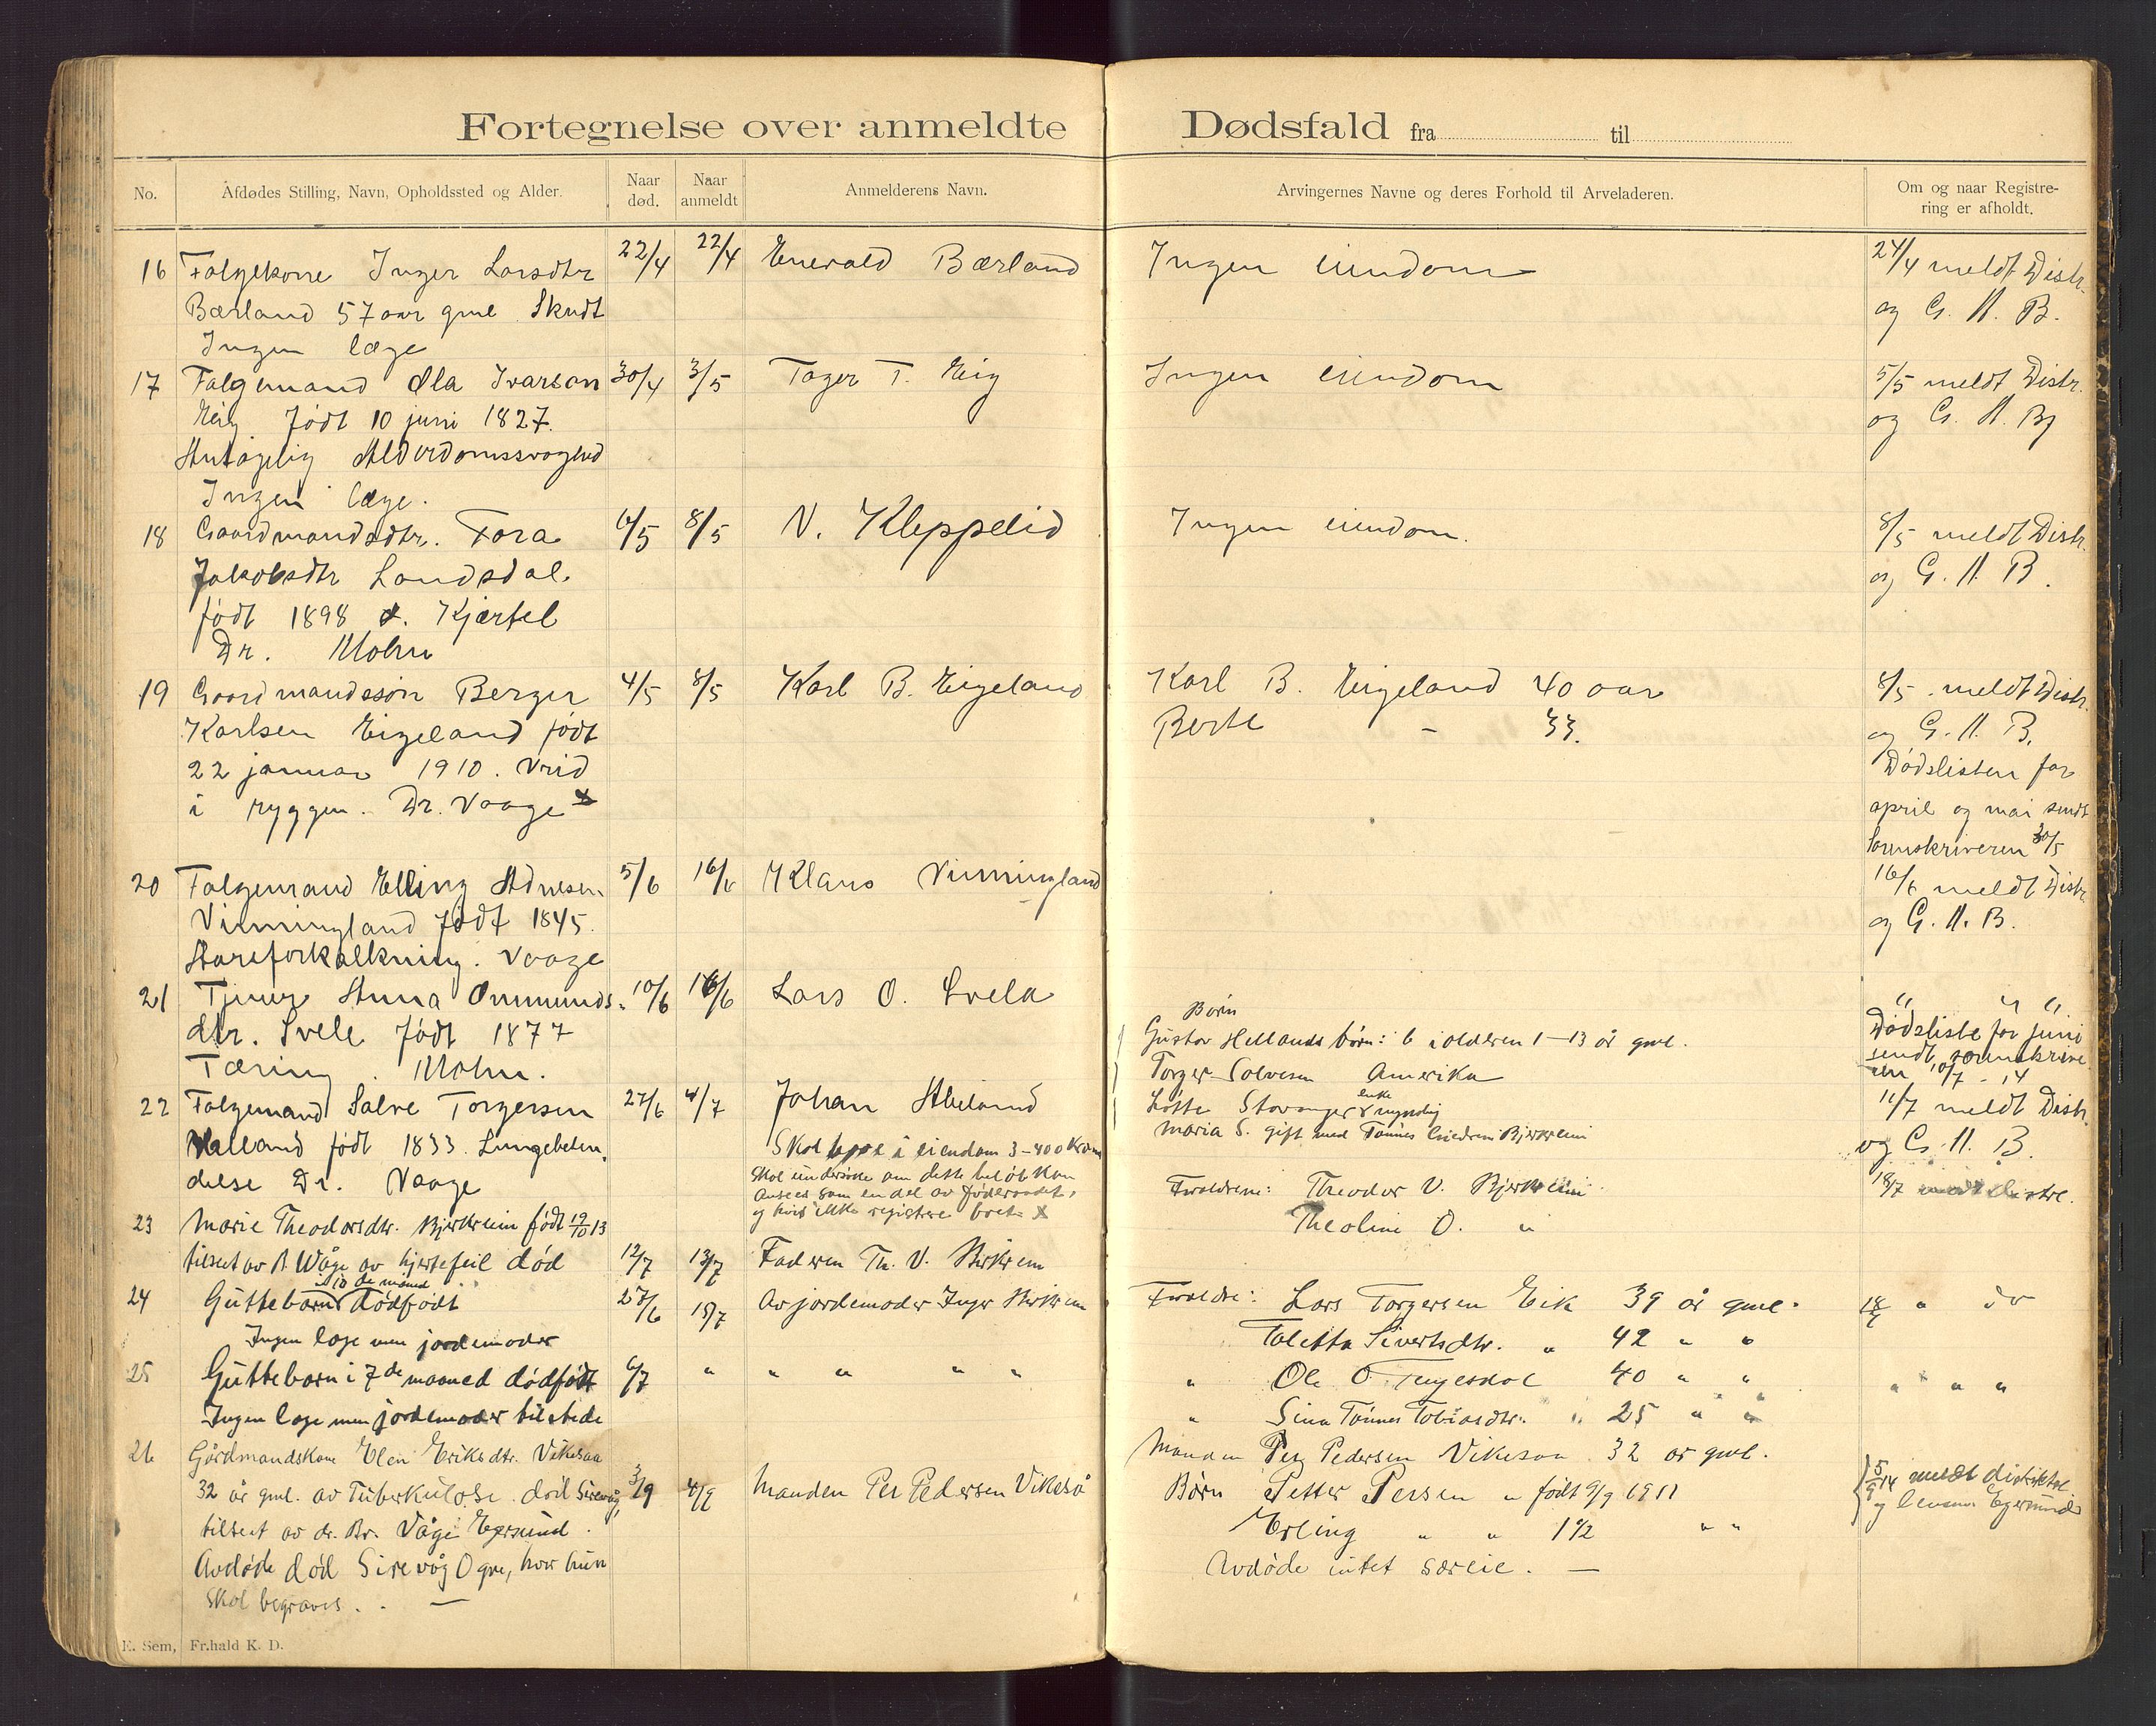 Fortegnelse over anmeldte Dødsfald fra til
No.
Afdødes Stilling, Navn, Opholdssted og Alder.
Naar død.
Naar anmeldt
Anmelderens Navn.
Arvingernes Navne og deres Forhold til Arveladeren.
Om og naar Registrering er afholdt.
16 Folgekone Inger Larsdtr 22/4 22/4 Enevald Bærland Ingen eiendom 24/4 meldt Distr.
Bærland 57 aar gml og G. A. B.
Ingen læge
17 Folgemand Ola Ivarson 30/4 3/5 Toger T. Eig Ingen eiendom 5/5 meldt Distr.
Eig født 10 juni 1827. og G. A. Bj
Antagelig Alderdomssvaghed
Ingen læge.
18 Gaardmandsdtr. Tora 6/5 8/5 N. Kleppelid Ingen eiendom. 8/5 meldt Distr.
Jakobsdtr Landsdal. og G. A. B.
født 1898 Kjertel
Dr. Mohn
19 Gaardmandssøn Berger 4/5 8/5 Karl B. Eigeland Karl B. Eigeland 40 aar 8/5 meldt Distr.
Karlsen Eigeland født Berte - 33. og G. A. B.
22 januar 1910. Vrid Dødslisten for
i ryggen. Dr. Vaage april og mai sendt
Sorenskriveren 30/5
20 Folgemand Elling Adnesen 5/6 16/6 Klaus Vinningland 16/6 meldt Distr.
Vinningland født 1845. og G. A. B.
Aareforkalkning. Vaage
21 Anna Ommunds- 10/6 16/6 Lars O. Svela " " "
dtr. Svele født 1877 Børn Dødsliste for juni
Tæring. Mohn. Gustav Hellands børn: 6 i alderen 1-13 år gml. sendt sorenskrive
Torger Salvesen Amerika ren 10/7 - 14
22 Folgemand Salve Torgersen 27/6 4/7 Johan Aeland Lotte Stavanger enke & myndig 11/7 meldt Distr.
Helland født 1833. Lungebeten- Maria S. gift med Tønnes Bjerkreim og G. A. B.
delse Dr. Vaage
Skal i eiendom 3-400 Kroner
Skal undersøke om dette beløb kan
ansees som en del av føderaadet,
og hvis ikke registrere boet
23 Marie Theodorsdtr. Bjerkreim født 19/10 13 Forældrene: Theodor V. Bjerkreim 18/7 meldt distr.
tilseet av B Wåge av hjertefeil død 12/7 13/7 Faderen Th. V. Birkrem Theoline O. "
24 Guttebarn i 10de maaned dødfødt 27/6 15/7 Av jordemoder Inger Birkrem Forældre: Lars Torgersen Eik 39 år gml. 18/7 " do
Ingen læge men jordemoder Toletta Sivertsdtr. " 42 " "
25 Guttebarn i 7de maaned dødfødt 6/7 " " " " " " Ole O. 40 " " " " "
Ingen læge men jordemoder tilstede " Sina Tønnes Tobiasdtr. " 25 " "
26 Gårdmandskone Elen Eriksdtr. Vikesaa Manden Per Pedersen Vikesaa 32 år gml.
32 år gml. av Tuberkulose. død Sirevåg, 3/9 4/9 Manden Per Pedersen Vikeså Børn Petter Persen " født 9/9 1911 5/9 14 meldt distriktsl
tilseet av dr. Br. Våge Egersund. Erling " " 1 1/2 " " og Egersund
Avdøde død Sirevåg Ogne, hvor hun Avdøde intet særeie. —
skal begraves. —
E. Sem, Fr.hald K. D.